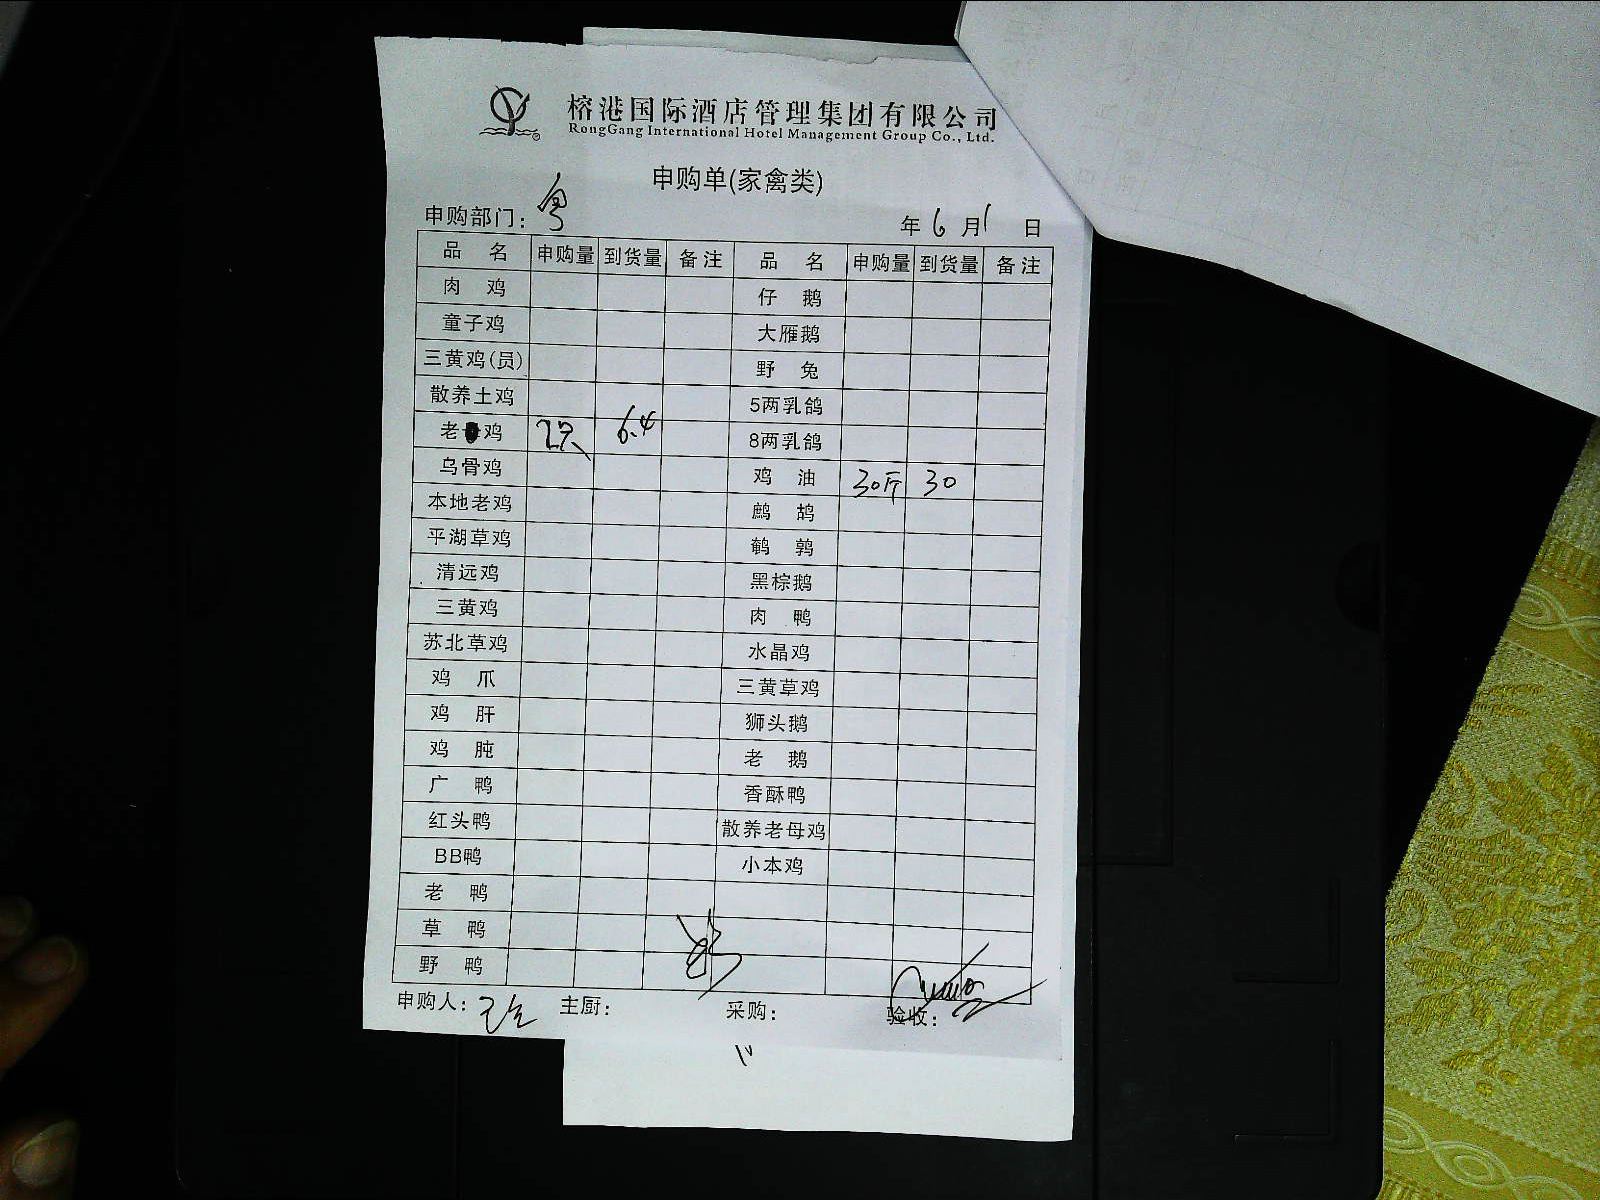 榕港国际酒店管理集团有限公司
RongGang International Hotel Management Group Co., Ltd.
申购单(家禽类)
申购部门: 粤 年 6 月 1 日
品名 申购量 到货量 备注 品名 申购量 到货量 备注
肉鸡 仔鹅
童子鸡 大雁鹅
三黄鸡(员) 野兔
散养土鸡 5两乳鸽
老鸡 2只 6.4 8两乳鸽
乌骨鸡 鸡油 30斤 30
本地老鸡 鹧鸪
平湖草鸡 鹌鹑
清远鸡 黑棕鹅
三黄鸡 肉鸭
苏北草鸡 水晶鸡
鸡爪 三黄草鸡
鸡肝 狮头鹅
鸡肫 老鹅
广鸭 香酥鸭
红头鸭 散养老母鸡
BB鸭 小本鸡
老鸭
草鸭
野鸭
申购人: 主厨: 采购: 验收: